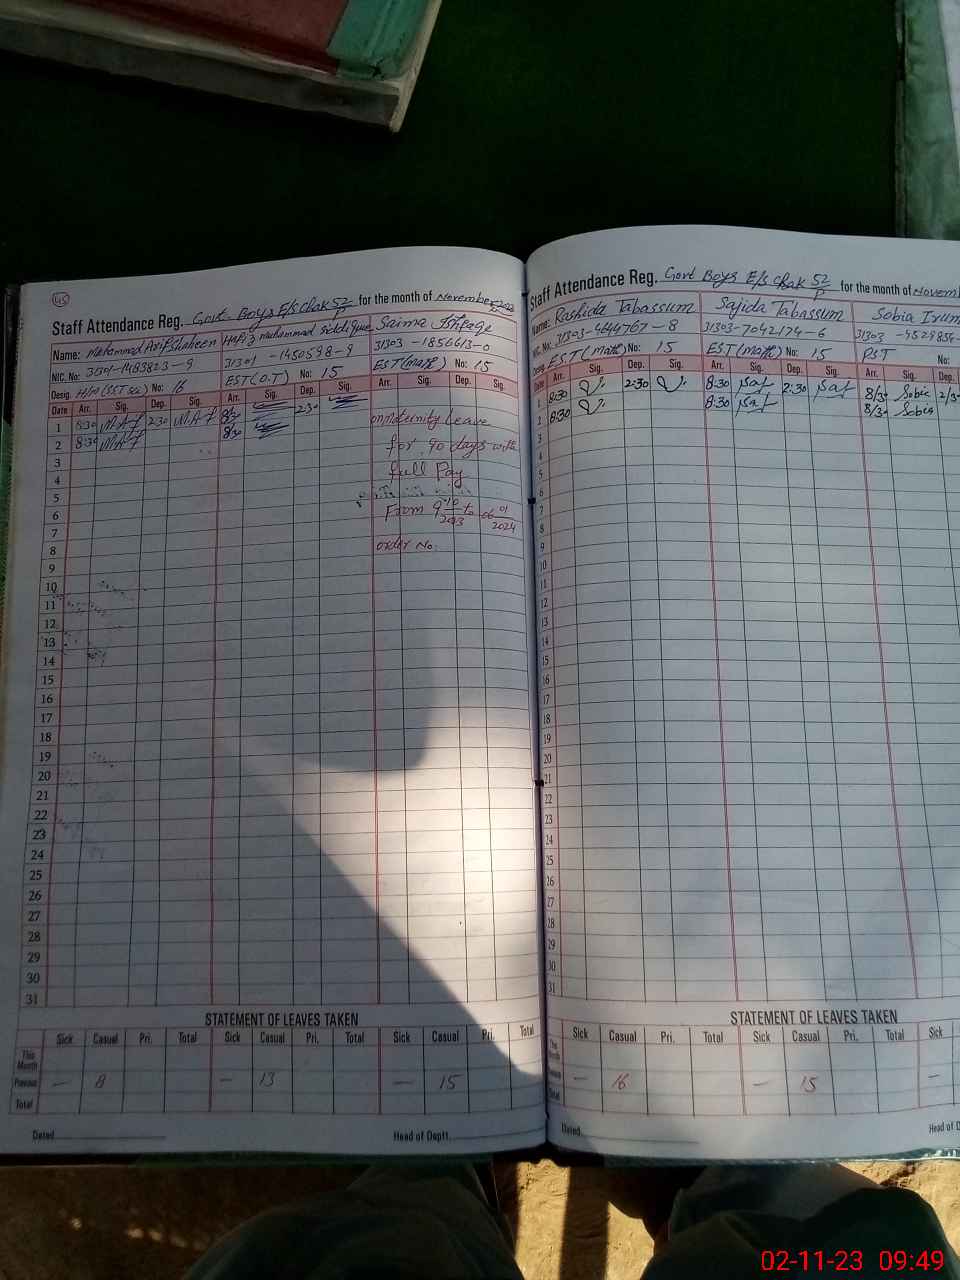 45
Staff Attendance Reg. Govt. Boys E/S Chak 52/P for the month of November
Name: Muhammad Asif Shaheen Hafiz Muhammad Siddique Saima Ishfaqe
NIC. No: 31301-1450598-9 31303-1856613-0
Desig. H/M (SST Sci) No: 16 EST (O.T) No: 15 EST (Math) No: 15
Date Arr. Sig. Dep. Sig. Arr. Sig. Dep. Sig. Arr. Sig. Dep. Sig.
1 8:30 M.A.S 2:30 M.A.S 8/30 2:30
2 8:30 M.A.S 8/30
on maternity leave
for 90 days with
full Pay
From 9/10/2023 to 06/01/2024
order No.
3
4
5
6
7
8
9
10
11
12
13
14
15
16
17
18
19
20
21
22
23
24
25
26
27
28
29
30
31
STATEMENT OF LEAVES TAKEN
Sick Casual Pri. Total Sick Casual Pri. Total Sick Casual Pri. Total
This Month
Previous — 8 — 13 — 15
Total
Dated Head of Deptt.
Staff Attendance Reg. Govt Boys E/S Chak 52/P for the month of
Name: Rashida Tabassum Sajida Tabassum Sobia Irum
NIC. No: 31303-4644767-8 31303-7042174-6 31303
Desig. EST (Math) No: 15 EST (Math) No: 15 PST No:
Date Arr. Sig. Dep. Sig. Arr. Sig. Dep. Sig. Arr. Sig. Dep.
1 8:30 2:30 8:30 2:30 8/30 Sobia 2/3
2 8:30 8:30 8/30 Sobia
3
4
5
6
7
8
9
10
11
12
13
14
15
16
17
18
19
20
21
22
23
24
25
26
27
28
29
30
31
STATEMENT OF LEAVES TAKEN
Sick Casual Pri. Total Sick Casual Pri. Total Sick
This Month
— 16 — 15 —
Dated Head of D
02-11-23 09:49